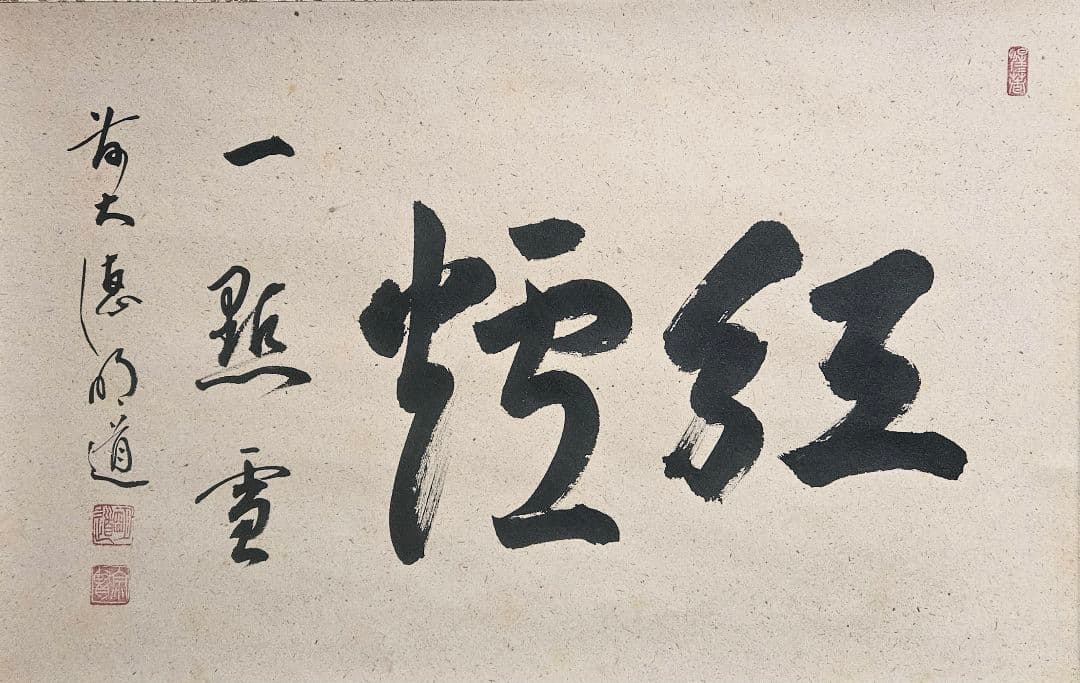 紅爐
一點雪
前大德明道